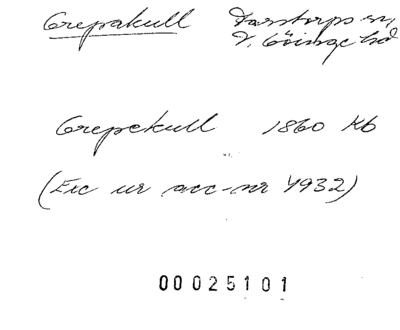 Grepakull Farstorps sn,
V. Göinge hd
Grepekull 1860 Kb
(Exc ur acc-nr 4932)
00025101